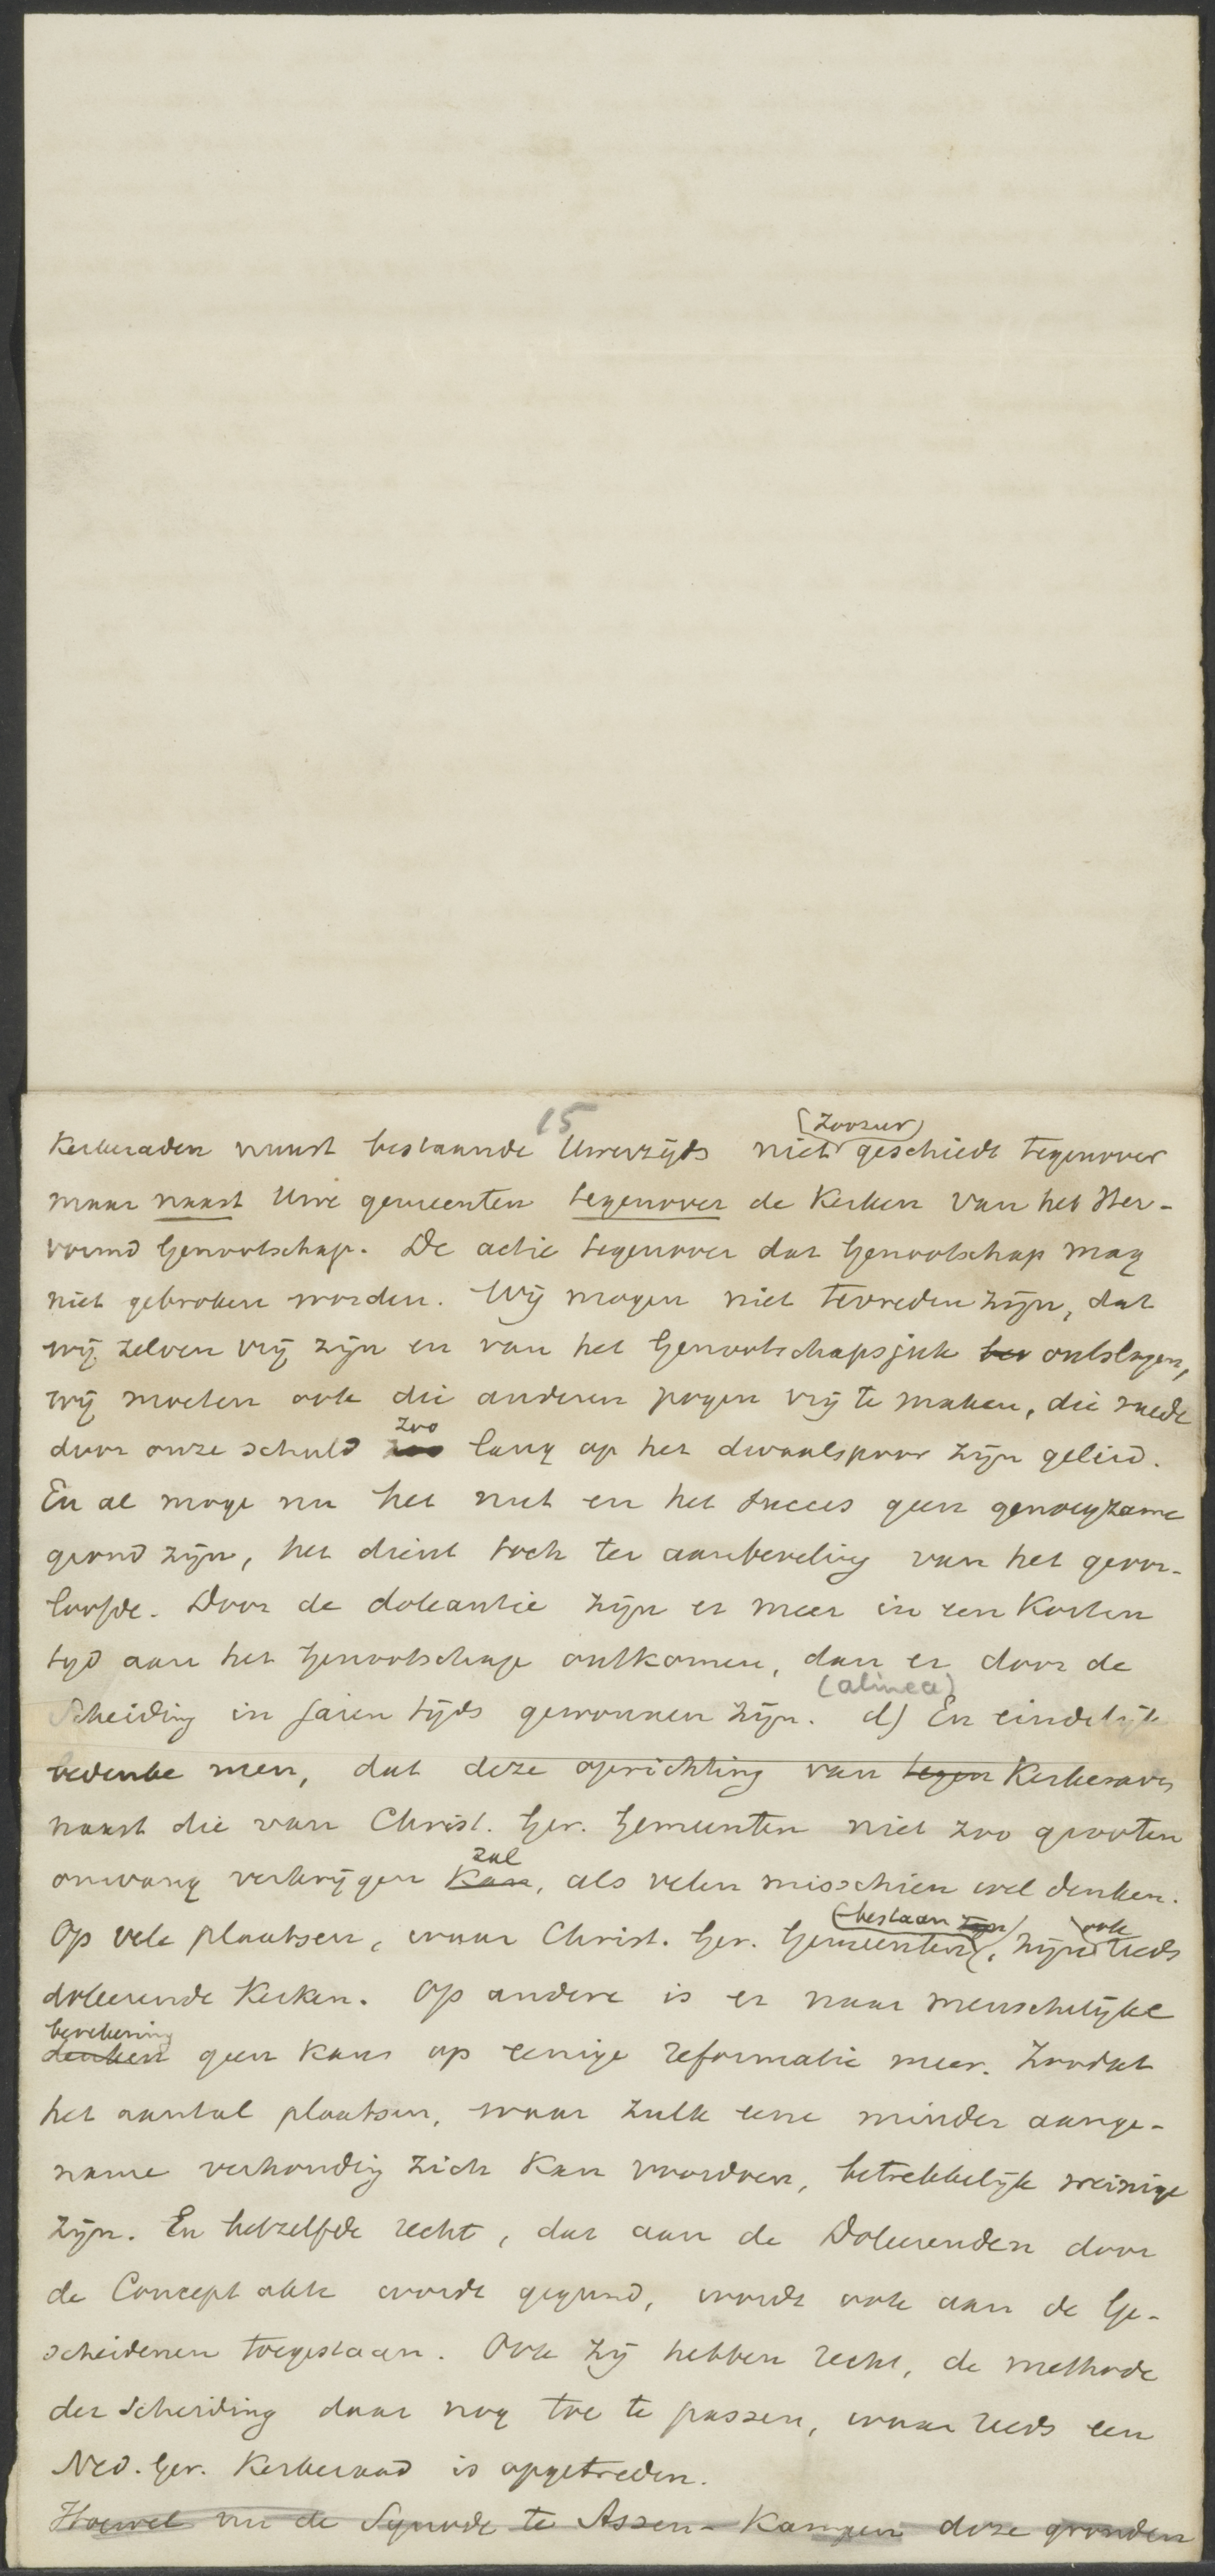 15
Kerkeraden naast bestaande Uwerzijds niet (zoozeer) geschiedt tegenover
maar naast Uwe gemeenten tegenover de Kerken van het Her-
vormd Genootschap. De actie tegenover dat Genootschap mag
niet gebroken worden. Wij mogen niet tevreden zijn, dat
wij zelven vrij zijn en van het Genootschapsjuk ontslagen,
wij moeten ook die anderen pogen vrij te maken, die mede
door onze schuld zoo lang op het dwaalspoor zijn geleid.
En al moge nu het nut en het succes geen genoegzame
grond zijn, het dient toch ter aanbeveling van het geoor-
loofde. Door de doleantie zijn er meer in een korten
tijd aan het Genootschap ontkomen, dan er door de
Scheiding in jaren tijds gewonnen zijn. (alinea) d) En eindelijk
bedenke men, dat deze oprichting van tegen Kerkeraden
naast die van Christ. Ger. Gemeenten niet zoo grooten
omvang verkrijgen kan zal, als velen misschien wel denken.
Op vele plaatsen, waar Christ. Ger. Gemeenten (bestaan zijn), zijn ook reeds
doleerende Kerken. Op andere is er naar menschelijke
denken berekening geen kans op eenige reformatie meer. Zoodat
het aantal plaatsen, waar zulk eene minder aange-
name verhouding zich kan voordoen, betrekkelijk weinige
zijn. En hetzelfde recht, dat aan de Doleerenden door
de Concept akte wordt gegund, wordt ook aan de Ge-
scheidenen toegestaan. Ook zij hebben recht, de methode
der Scheiding daar nog toe te passen, waar reeds een
Ned. Ger. Kerkeraad is opgetreden.
Hoewel nu de Synode te Assen-Kampen deze gronden